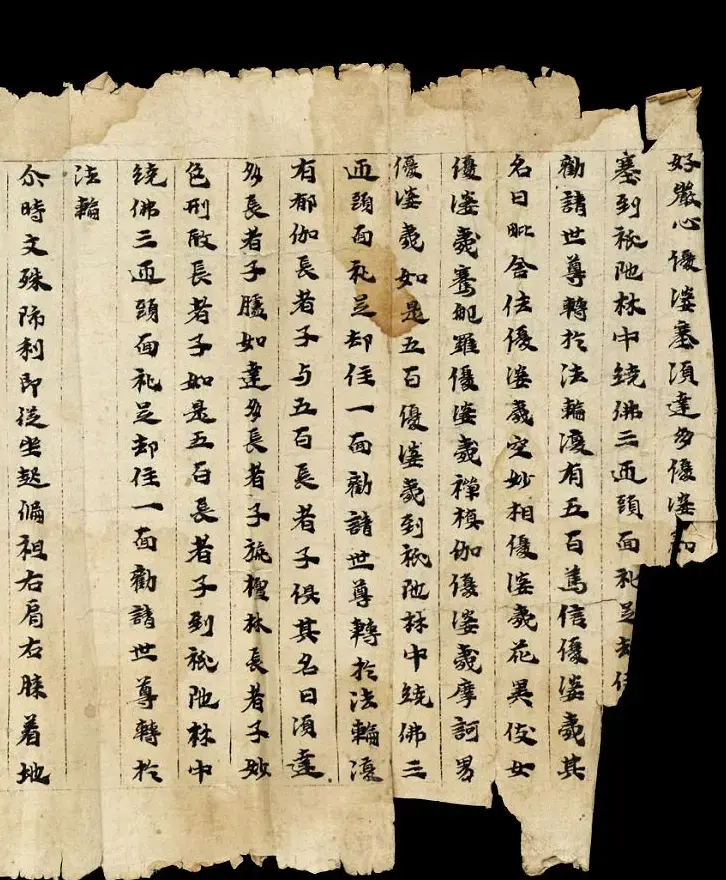 好嚴心優婆塞須達多優婆
塞到祇陁林中繞佛三迊頭面礼足却住
勸請世尊轉於法輪復有五百篤信優婆夷其
名曰毗舍佉優婆夷空妙相優婆夷花異伎女
優婆夷騫陁羅優婆夷禪槙伽優婆夷摩訶男
優婆夷如是五百優婆夷到祇陁林中繞佛三
迊頭面礼足却住一面勸請世尊轉於法輪復
有郁伽長者子与五百長者子俱其名曰須達
多長者子臈如達多長者子旃檀林長者子妙
色刑敢長者子如是五百長者子到祇陁林中
繞佛三迊頭面礼足却住一面勸請世尊轉於
法輪
尒時文殊師利即從坐起偏袒右肩右膝着地